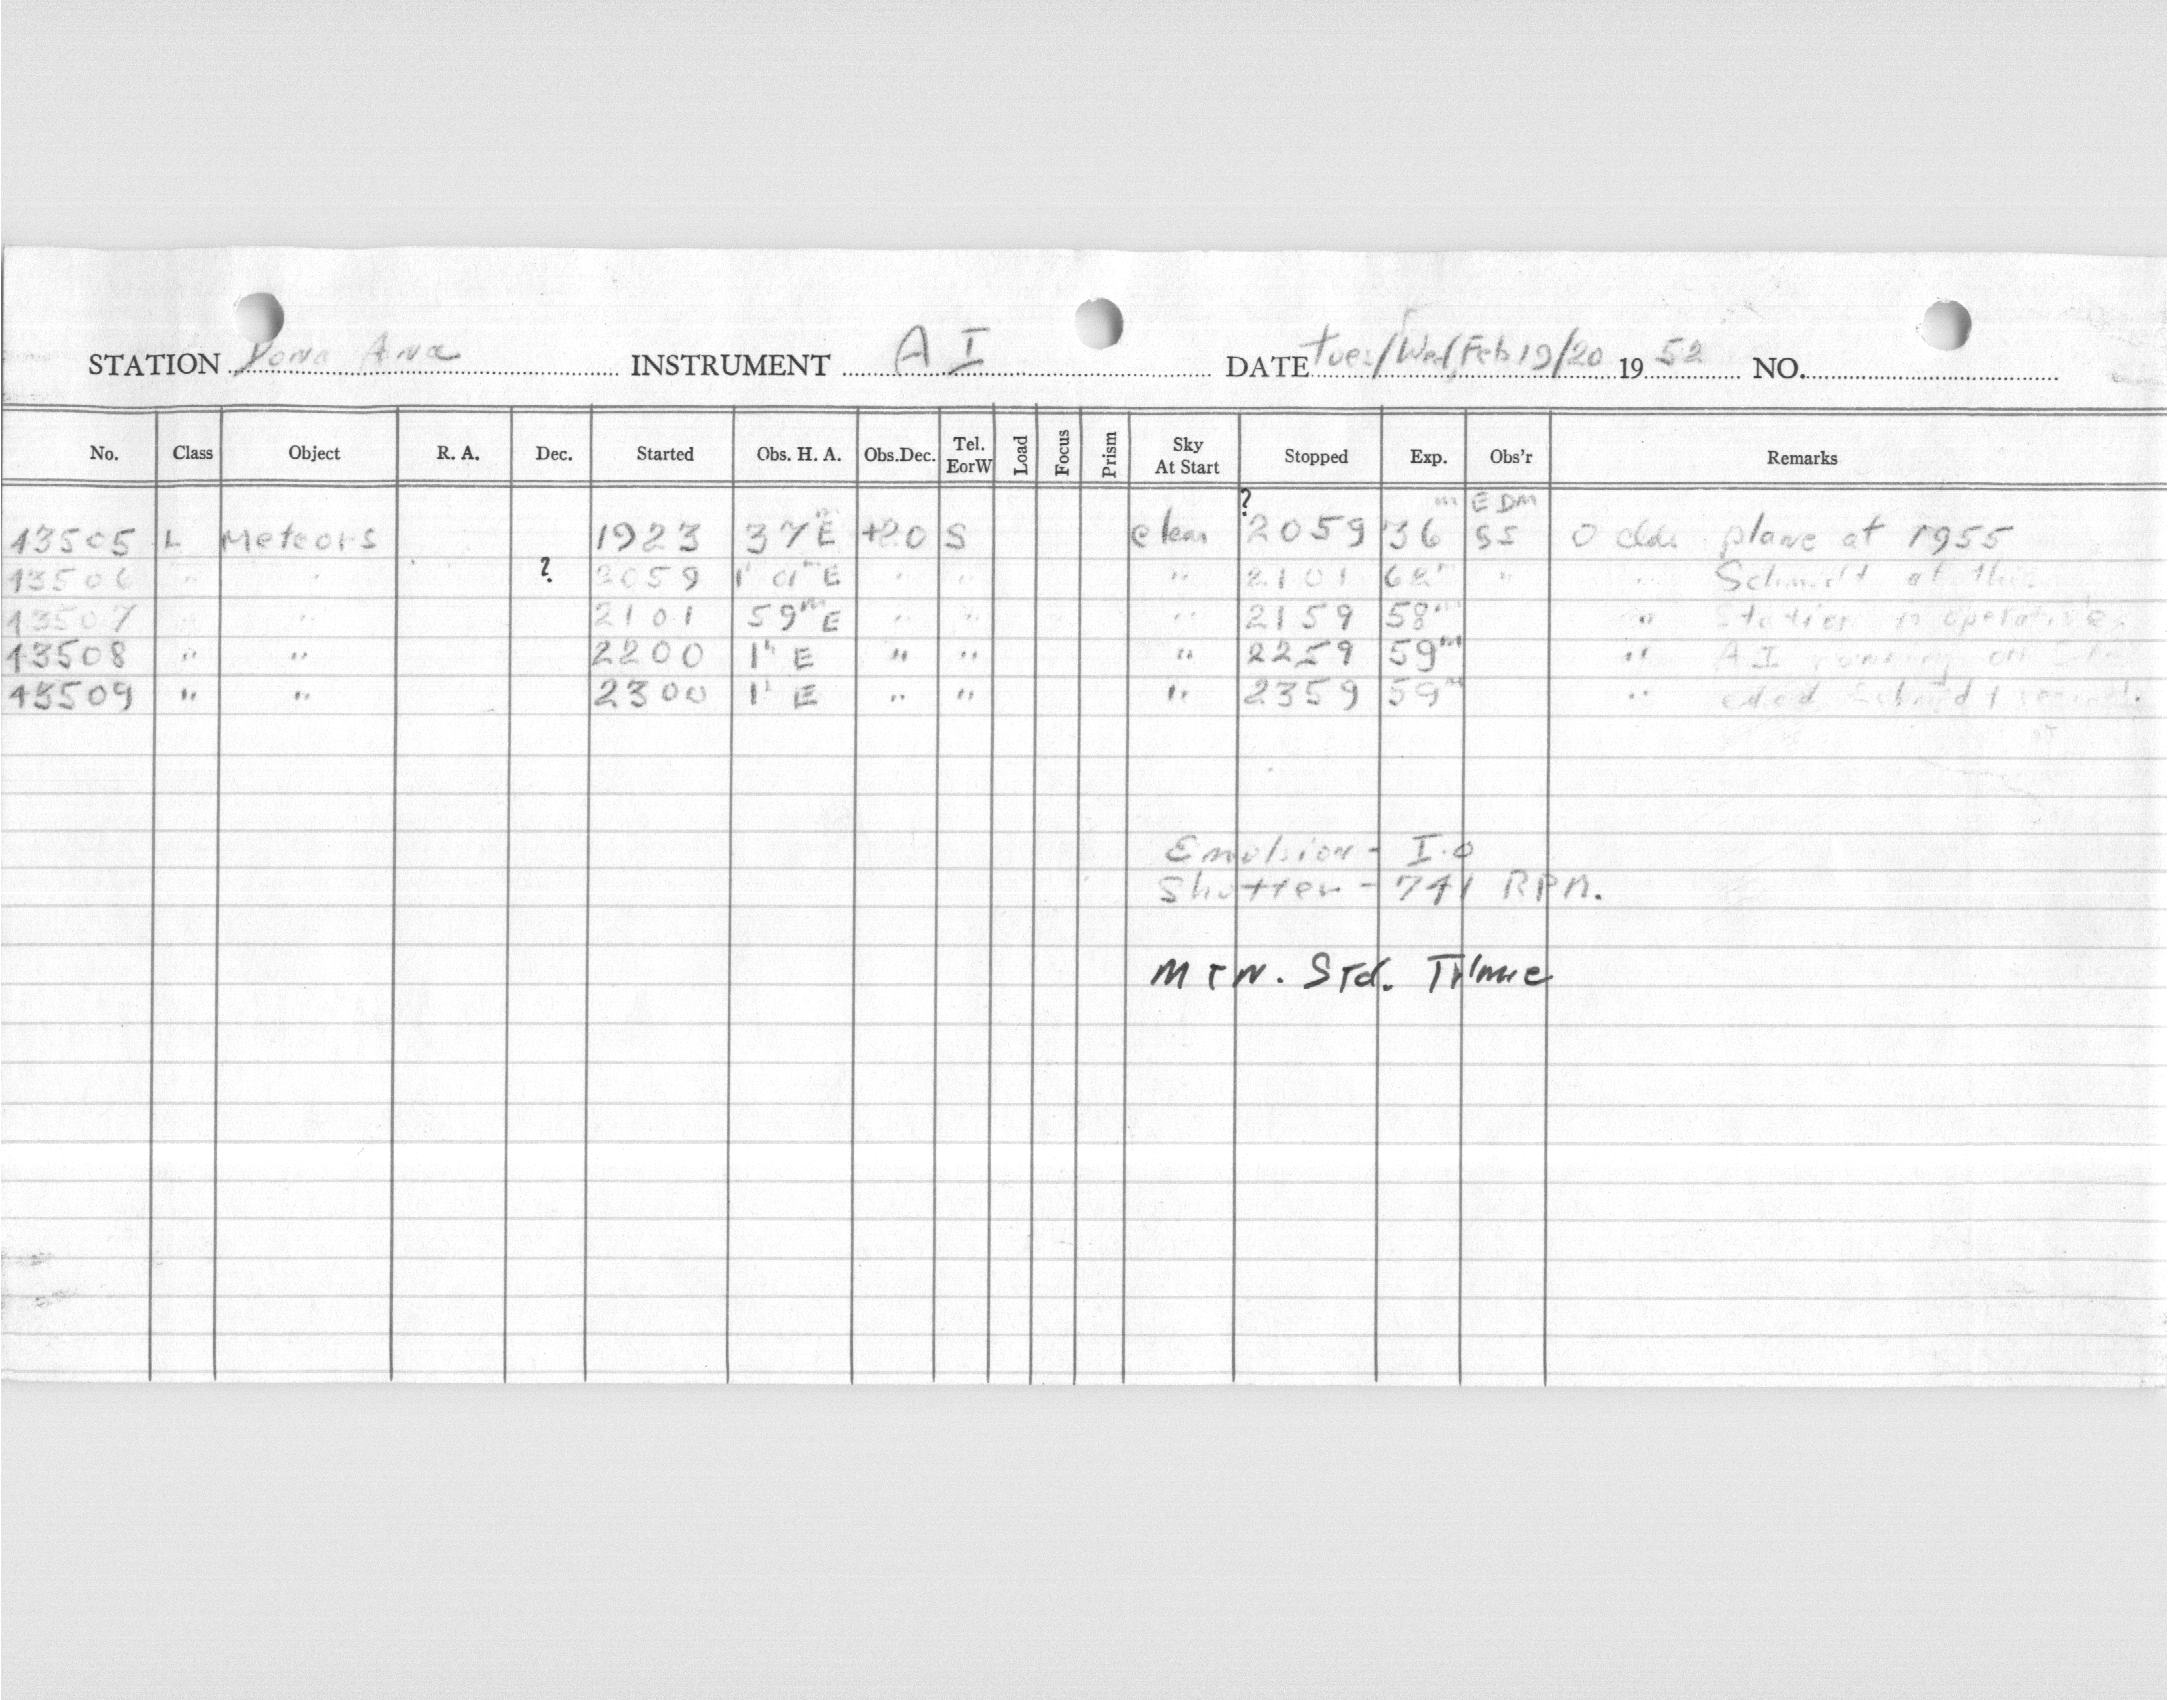 STATION Dona Ana INSTRUMENT A I DATE Tues/Wed, Feb 19/20 19 52 NO.
No. Class Object R. A. Dec. Started Obs. H. A. Obs.Dec. Tel. EorW Load Focus Prism Sky At Start Stopped Exp. Obs'r Remarks
13505 L Meteors 1923 37m E +20 S clear ? 2059 36m EDM SS 0 plane at 1955
13506 " " ? 2059 1h 01m E " " " 2101 62m " " Schmidt at this
13507 " " 2101 59m E " " " 2159 58m " station inoperative
13508 " " 2200 1h E " " " 2259 59m " A I running on
13509 " " 2300 1h E " " " 2359 59m " Schmidt
Emulsion - I-O
Shutter - 741 RPM.
MTN. STd. Time